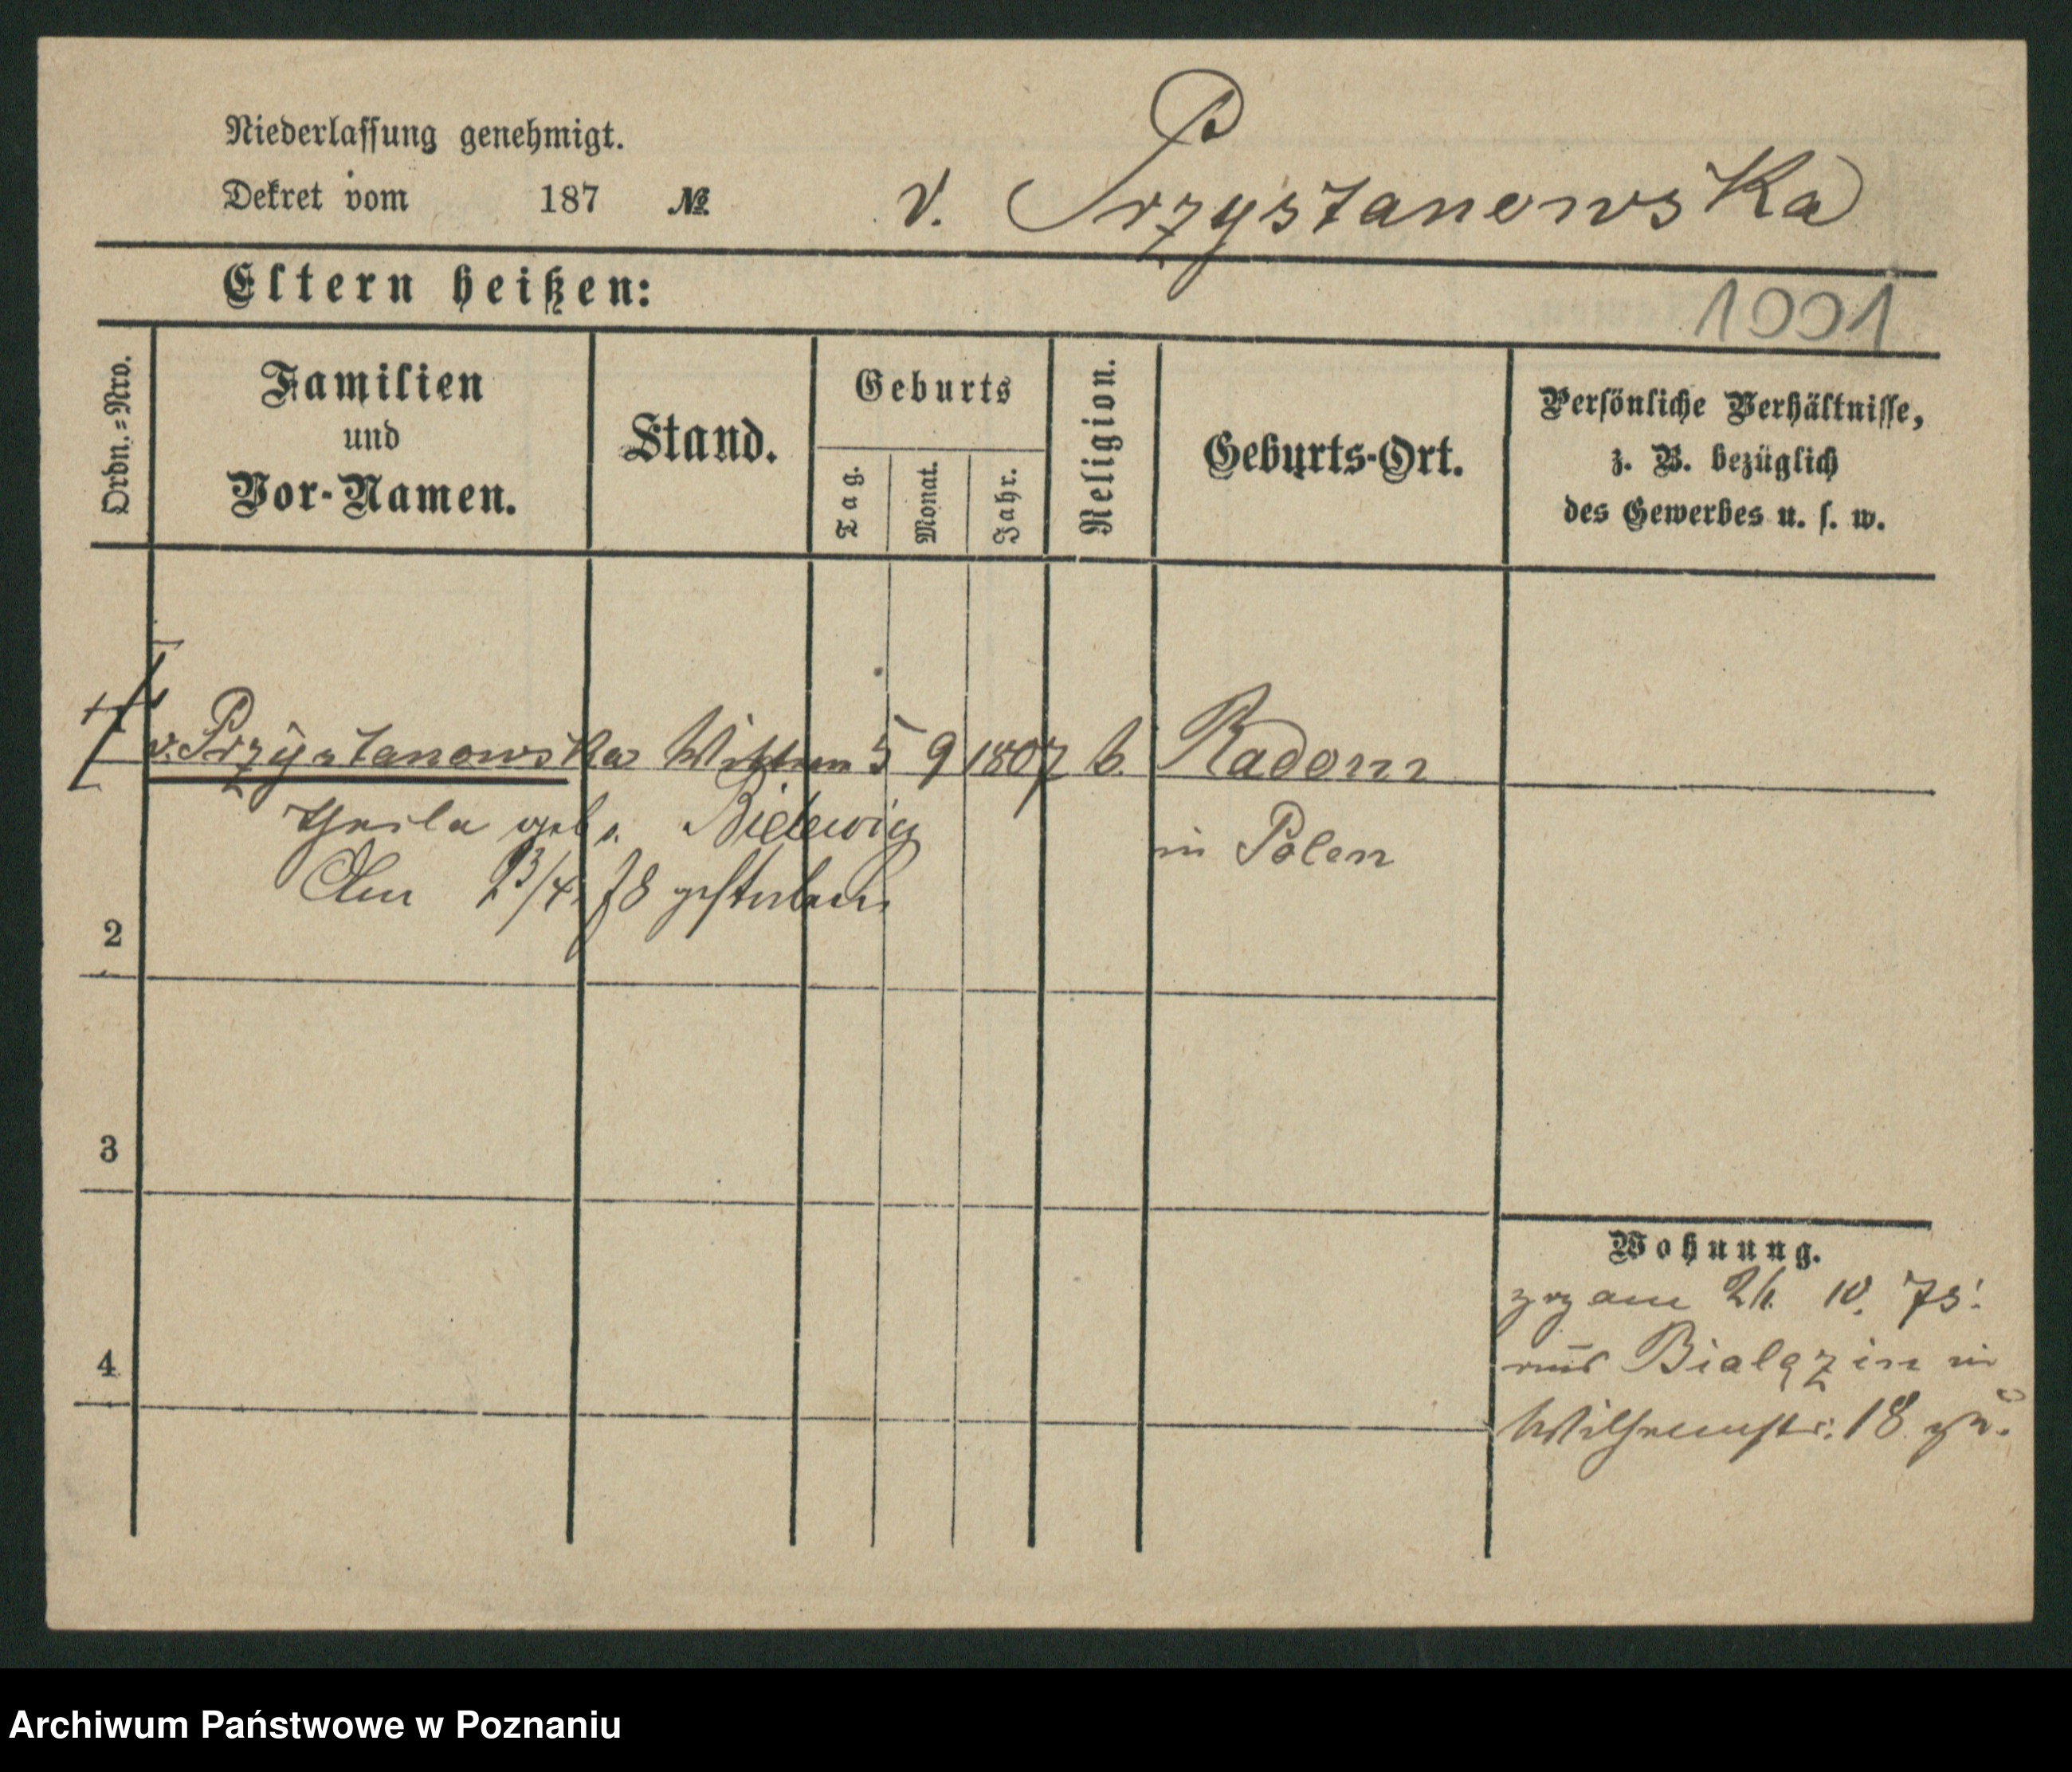 Niederlassung genehmigt.
Dekret vom 187 №
v. Przystanowska
Eltern heißen:
1001
Ordn.=Nro.
Familien
und
Vor-Namen.
Stand.
Geburts
Tag.
Monat.
Jahr.
Religion.
Geburts-Ort.
Persönliche Verhältnisse,
z. B. bezüglich
des Gewerbes u. s. w.
v. Przystanowska Wittwe 5 9 1807 k. Radom
geb. in Polen
Am 23/4. 78 gestorben
2
3
4
Wohnung.
zgz am 10. 75.
aus Bialęzin in
Wilhelmstr. 18
Archiwum Państwowe w Poznaniu